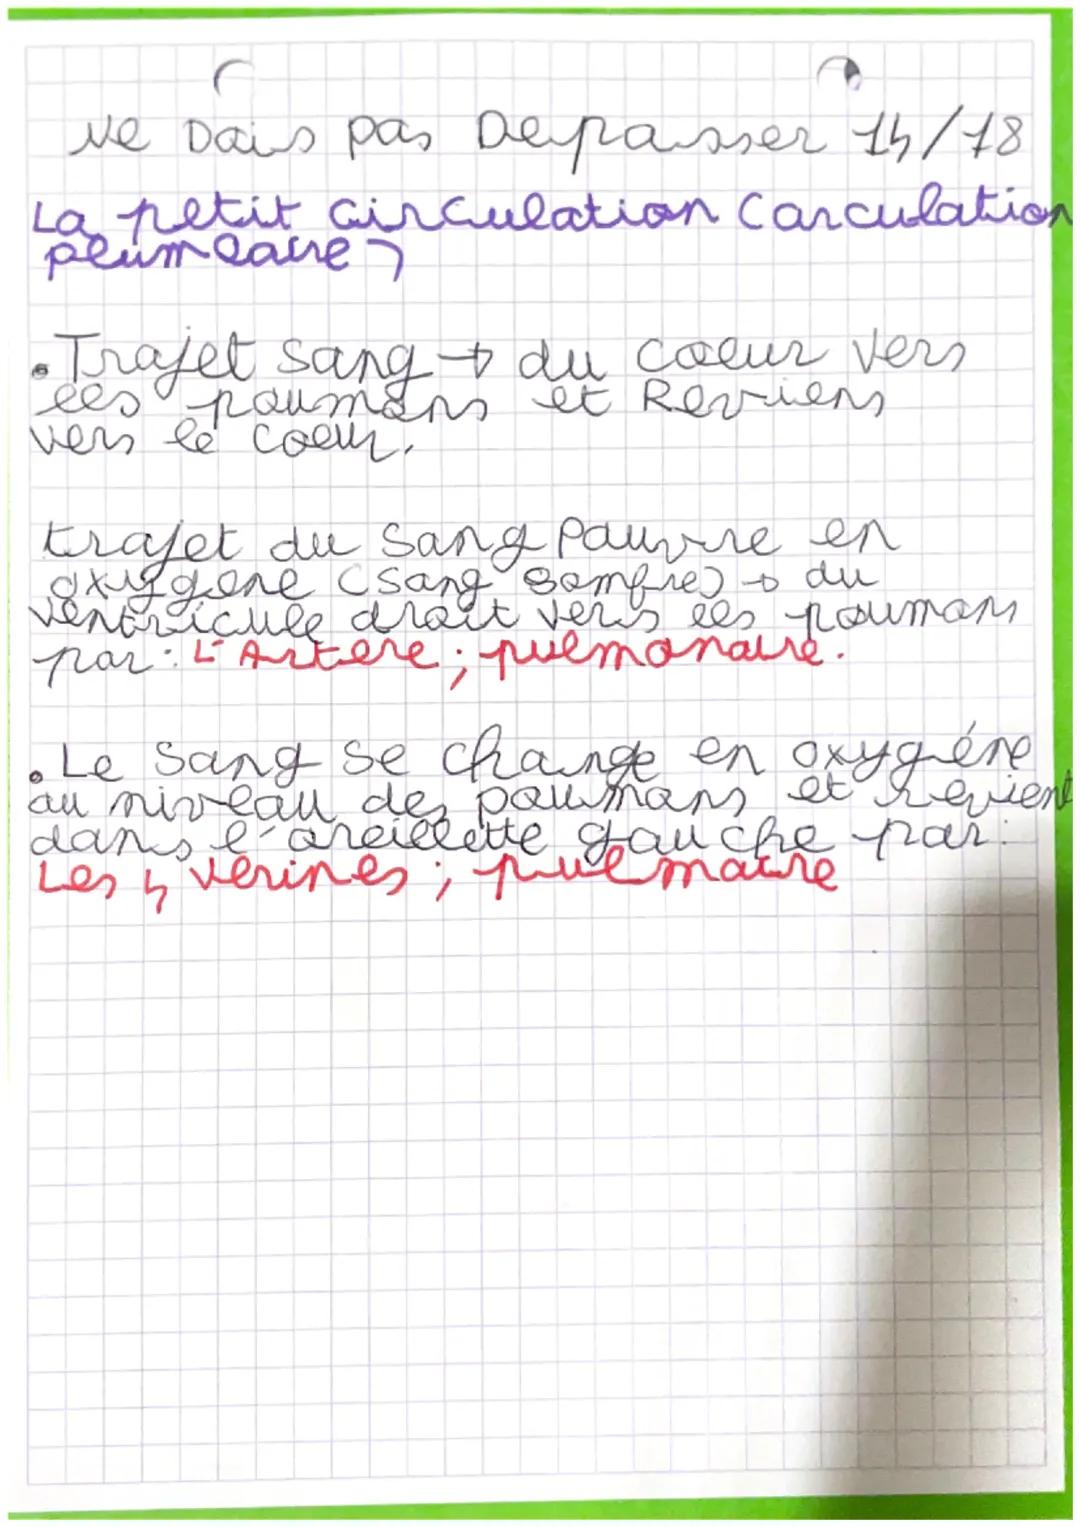 Ne Dois pas Depasser 14/18
La petit circulation Carculation
plumlaire
• Trajet sang → du coeur vers
les poumons et Reviens
vers le coeur.
trajet du sang pauvre en
oxygene (sang sombre) → du
ventricule droit vers les poumons
par : L'Artere ; pulmonaire.
• Le sang se change en oxygéne
au niveau des poumons et revient
dans l'oreillette gauche par :
Les 4 verines ; pulmaire